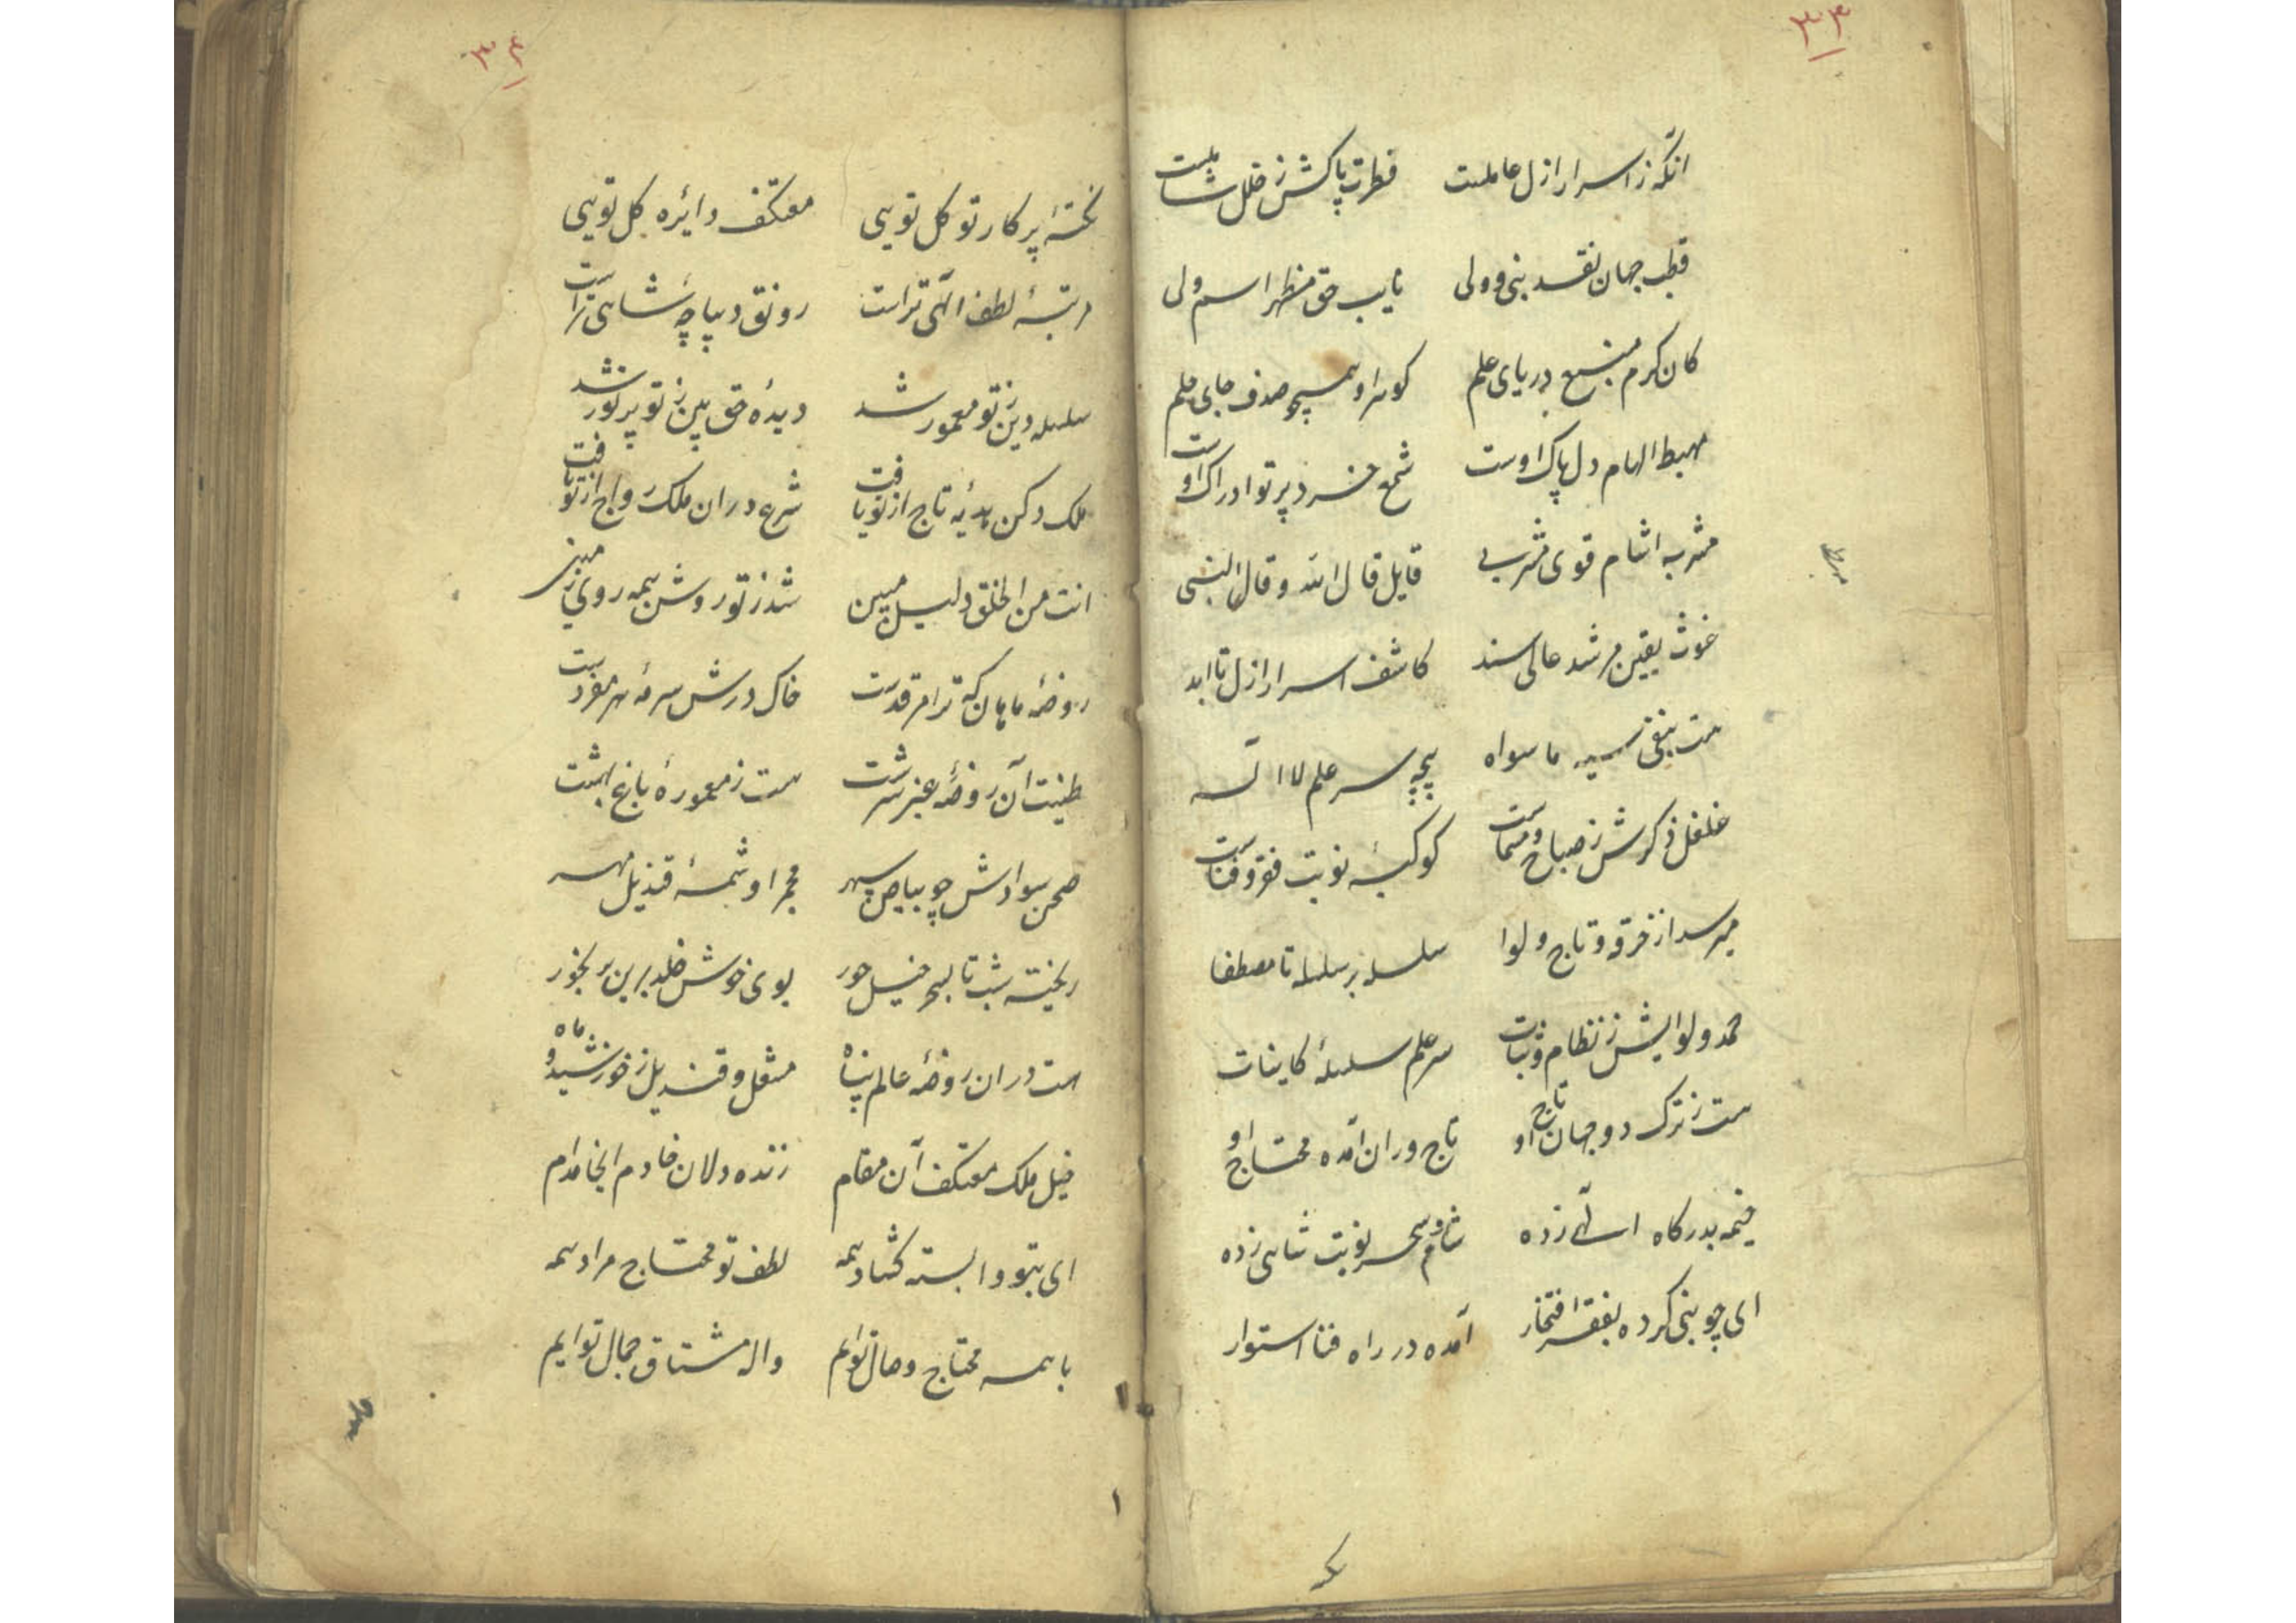 ۳۳
انکه ز اسرار ازل عاملست فطرت پاکش ز خلل شاملست
قطب جهان نقد نبی و ولی نایب حق مظهر اسم ولی
کان کرم منبع دریای علم کوهر او همچو صدف جای حلم
مهبط الهام دل پاک اوست شمع خرد پرتو ادراک اوست
مشربه اشام قوی مشربی قایل قال الله و قال النبی
غوث یقین مرشد عالی سند کاشف اسرار ازل تا ابد
هست بنفی سیه ما سواه پنچه سر علم لا اله
غلغل ذکرش ز صباح و مساست کوکبهٔ نوبت فقر و فناست
میرسد از خرقه و تاج و لوا سلسله بر سلسله تا مصطفا
حمد و لوایش ز نظام و ثبات سر علم سلسلهٔ کاینات
هست ز ترک دو جهان تاج او تاج وران آمده محتاج او
خیمه بدرکاه الهی زده شام و سحر نوبت شاهی زده
ای چو نبی کرده بفقر افتخار آمده در راه فنا استوار
۳۴
نختهٔ پرکار تو کل تویی معتکف دایره کل تویی
مرتبهٔ لطف الهی تراست رونق دیباچهٔ شاهی تراست
سلسله دین ز تو معمور شد دیدهٔ حق بین ز تو پر نور شد
ملک دکن هدیه تاج از تو یافت شرع در ان ملک رواج از تو یافت
انت من الخلق دلیل مبین شد ز تو روشن همه روی زمین
روضهٔ ماهان که ترا مرقدست خاک درش سرمهٔ هر مقردست
طینت آن روضهٔ عنبر سرشت هست ز معمورهٔ باغ بهشت
صحن سوادش چو بیاض سپهر مجمر او شمسهٔ قندیل مهر
ریخته شب تا بسحر خیل حور بوی خوش خلد برین بر بخور
هست دران روضهٔ عالم پناه مشعل و قندیل ز خورشید و ماه
خیل ملک معتکف آن مقام زنده دلان خادم انجا مدام
ای بتو وابسته کشاد همه لطف تو محتاج مراد همه
با همه محتاج وصال توایم واله مشتاق جمال توایم